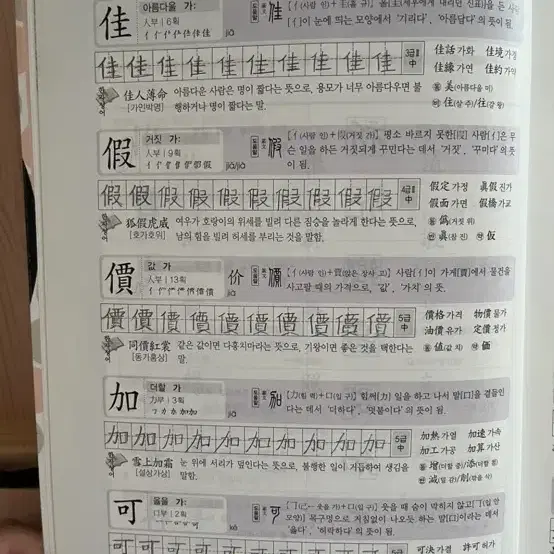 佳
아름다울 가:
人부 | 6획
[亻(사람 인)+圭(홀 규)]
[亻]이 눈에 띄는 모양에서 '기리다', '아름답다'의 뜻이 됨.
佳 佳 佳 佳 佳 佳 佳 佳 佳 佳
3급 中
佳話 가화 佳境 가경
佳緣 가연 佳約 가약
美(아름다울 미)
住(살 주)/往(갈 왕)
佳人薄命 아름다운 사람은 명이 짧다는 뜻으로, 용모가 너무 아름다우면 불
[가인박명] 행하거나 명이 짧다는 말.
假
거짓 가:
人부 | 9획
jiǎ/jià
평소 바르지 못한[叚] 사람[亻]은 무
슨 일을 하든 거짓되게 꾸민다는 데서 '거짓', '꾸미다'의 뜻
이 됨.
假 假 假 假 假 假 假 假 假 假
4급 中
假定 가정 眞假 진가
假面 가면 假橋 가교
僞(거짓 위)
眞(참 진) 仮
狐假虎威 여우가 호랑이의 위세를 빌려 다른 짐승을 놀라게 한다는 뜻으로,
[호가호위] 남의 힘을 빌려 허세를 부리는 것을 말함.
價
값 가
人부 | 13획
价
jià
사람[亻]이 가게[賈]에서 물건을
사고팔 때의 가격으로, '값', '가치'의 뜻.
價 價 價 價 價 價 價 價 價 價
5급 中
價格 가격 物價 물가
油價 유가 定價 정가
値(값 치) 価
同價紅裳 같은 값이면 다홍치마라는 뜻으로, 기왕이면 좋은 것을 택한다는
[동가홍상] 말.
加
더할 가
力부 | 3획
jiā
[力(힘 력)+口(입 구)] 힘써[力] 일을 하고 나서 말[口]을 곁들인
다는 데서 '더하다', '덧붙이다'의 뜻이 됨.
加 加 加 加 加 加 加 加 加 加
5급 中
加熱 가열 加速 가속
加工 가공 加算 가산
增(더할 증)/添(더할 첨)
減(덜 감)/削(깎을 삭)
雪上加霜 눈 위에 서리가 덮인다는 뜻으로, 불행한 일이 거듭하여 생김을
[설상가상] 말함.
可
옳을 가:
口부 | 2획
kě
웃을 때 숨이 막히지 않고
모양] 목구멍으로 거침없이 나오듯 하는 말[口]이라는 데서
'옳다', '허락하다'의 뜻이 됨.
可 可 可 可 可 可 可 可 可 可
5급
可決 가결 許可 허가